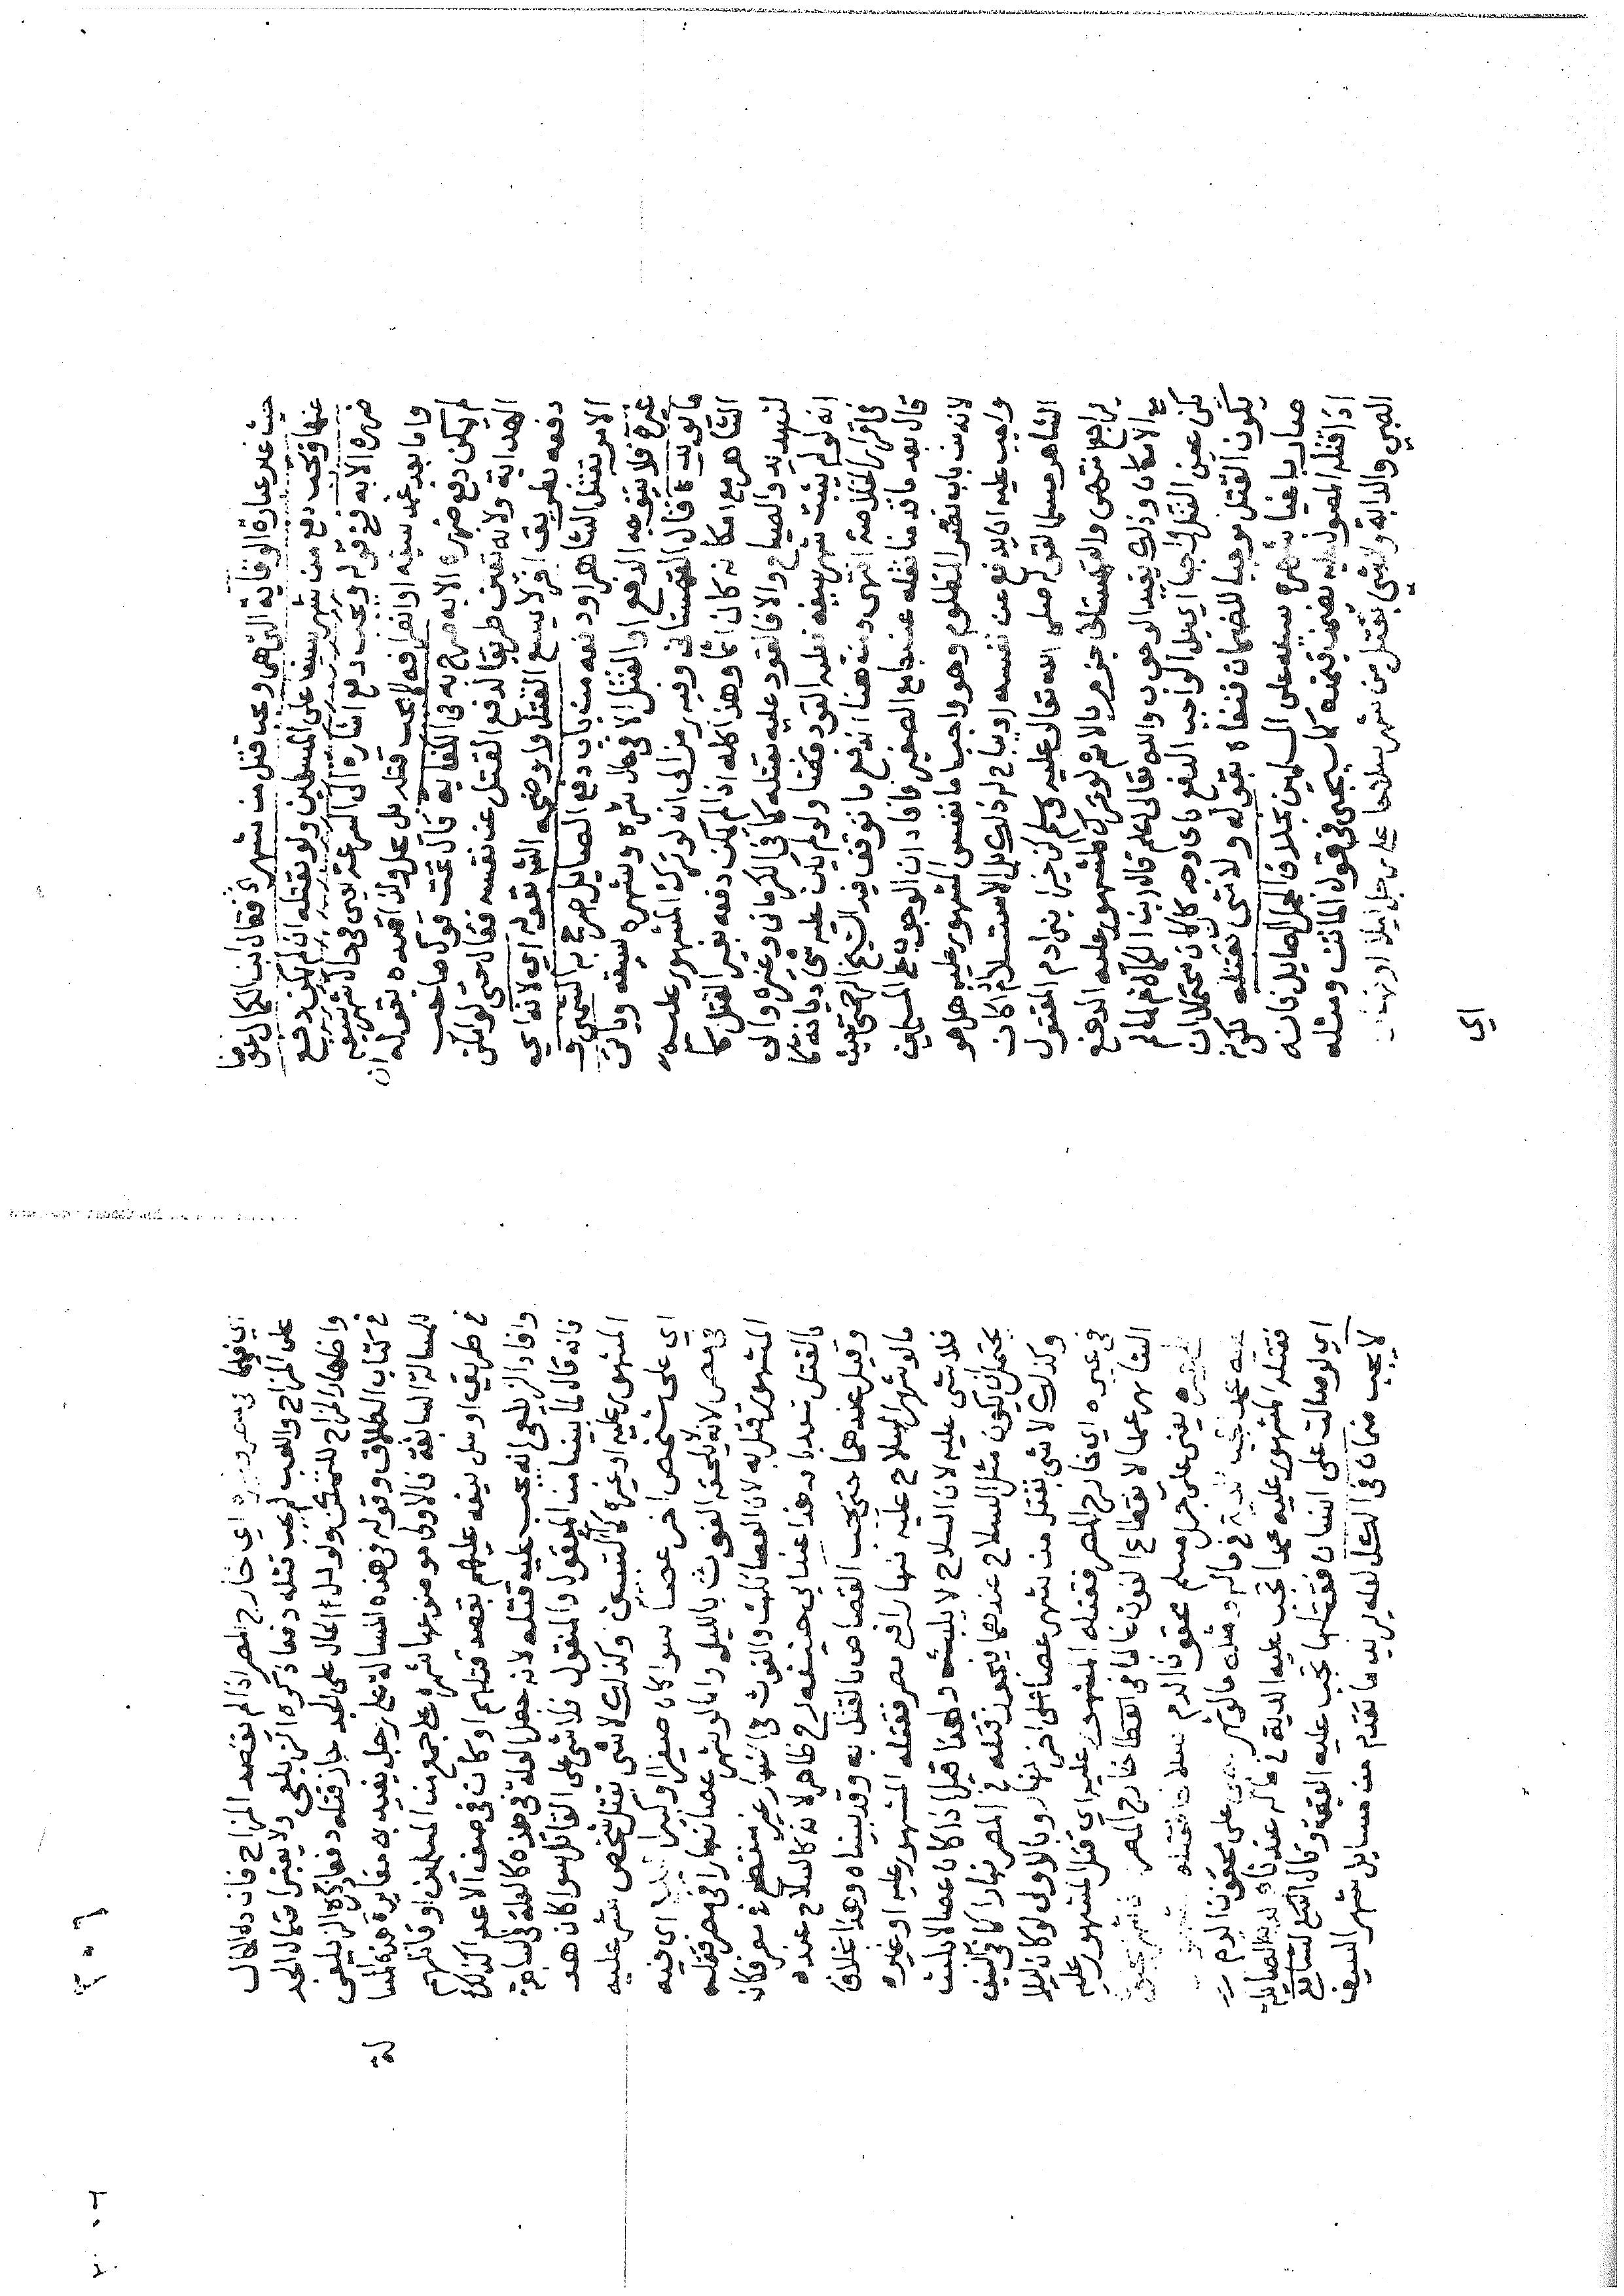 حيث غير عبارة الوقاية التي هي ويجب قتل من شهر الخ فقال ابن الكمال غير هنا
عنها ويجب دفع من شهر سيفا على المسلمين ولو بقتله ان لم يمكن دفع
ضرره الا به فرع قوله ويجب دفع اشارة الى ان شرعيته يعني في حال شهره سيفه
واما بعد غمد سيفه او انصرافه لا يجب قتله بل على ولذا قيده بقوله ان
لم يمكن دفع ضرره الا به صرح به في الكفاية قال تحت قول صاحب
الهداية ولانه تعين طريقا لدفع القتل عن نفسه فقال حتى لو امكن
دفعه بطريق اخر لا يسع القتل ولا وضحه الشر بقوله اي لانه اي
الامر بقتل الشاهر او دفعه من باب دفع الصايل صرح به الشمني و
غيره فلا يتوجه الدفع اذ القتل الا في حال شره وشهره سيفه وياتي
ما يؤيده قال القهستاني وفيه رمز الى انه لو ترك المشهور عليه
الشاهر مع امكانه كان اثما وهذا كله اذا لم يمكن دفعه بغير القتل كا
لتهديد والصياح والا فالقود عليه بقتله كما في الكرماني وغيره والى
انه لو لم يثبت شهر سيفه فعليه القود قضا ولو لم يكن عليه شي ديانة كما
في اقرار الخلاصة انتهى ومنه هنا اندفع ما توقف فيه الشيخ الرحمتي حيث
قال بعد ما قدمنا نقله عن جامع الصغير فافاد ان الوجوب على المسلمين
لانه من باب نصر المظلوم وهو واجب اما نفس المشهور عليه هل هو
واجب عليه ان يدفع عن نفسه او يباح له ذلك بل الاستسلام ان كان
الشاهر مسلما لقوله صلى الله تعالى عليه وسلم كن خير ابني ادم المقتول
يراجع انتهى والقهستاني جزم بالاثم لو ترك المشهور عليه الدفع
مع الامكان وذلك يفيد الوجوب والله تعالى اعلم قال ابن الكمال ثم لما لم
يكن عين القتل واجبا اي بل الواجب الدفع باي وجه كان كان محتملا ان
يكون القتل موجبا للضمان فنفاه بقوله ولا شي بقتله لكونه
صار باغيا بشهره سيفه على المسلمين بخلاف الجمل الصايل فانه
اذا قتله المصول عليه يضمن قيمته كما سيجي في قول الماتن ومثله
الصبي والدابة ولا شي بقتل من شهر سلاحا على رجل ليلا او نهارا
اي
اي فيها في مصر وغيره اي خارج المصر اذا لم يقصد المزاح فان دل الحال
على المزاح واللعب لم يجب قتله دفعا ذكره الزيلعي ولا يعتبر احتمال الجد
واظهار المزاح للتمكن ولو دل الحال على الجد جاز قتله دفعا ذكره الزيلعي
في كتاب الطلاق وقوله في هذه المسالة على رجل يفيد به مغايرة هذه المسا
لة
للمسالة السابقة فالاولى موضوعها شهره على جمع من المسلمين او قاتلهم
في طريق او سل سيفه عليهم بقصد قتلهم او كان في صف الاعدا لذلك
وافاد الزيلعي انه يجب عليه قتله لانه جعل العلة في هذه كالعلة في السابقة
فانه قال لما بينا من المعقول والمنقول فلا شي على القاتل سوا كان هو
المشهور عليه او غيره كما سيتبين وكذلك لا شي بقتل شخص شهر عليه
اي على شخص اخر عصا سوا كان صغيرا او كبيرا ليلا اي فيه
في مصر لانه لا يلحقه الغوث بالليل واما لو شهر عصا نهارا في مصر فقتله
المشهور قتل به لان العصا تلبث والغوث في النهار غير منقطع في مصر فكان
بالقتل متعديا وهذا عند ابي حنيفة رح ظاهر لانه كالسلاح عنده
وقيل عندهما حتى يجب القصاص بالقتل به وقد بيناه وهذا بخلاف
ما لو شهر السلاح عليه نهارا في مصر فقتله المشهور عليه او غيره
فلا شي عليه لان السلاح لا يلبث ولهذا قيل اذا كان عصا لا تلبث
يحتمل ان يكون مثل السلاح عندهما فيجوز قتله في المصر نهارا كما في التبيين
وكذلك لا شي بقتل من شهر عصا على اخر نهارا وبالاولى لو كان ليلا
في غيره اي خارج المصر فقتله المشهور عليه اي قتل المشهور عليه
الشاهر عمدا لانقطاع الغوث غالبا في العصا خارج المصر
يعني على رجل مسلم محقون الدم
على محقون الدم
عمدا تجب الدية في ماله ومثله ما لو شهر
فقتله المشهور عليه عمدا تجب عليه الدية في ماله عندنا
اي لو صالت على انسان فقتلها تجب عليه القيمة وقال الشافعي
لا يجب ضمان في الكل لعله يريد ما تقدم من مسايل شهر السيف
٢٠٦